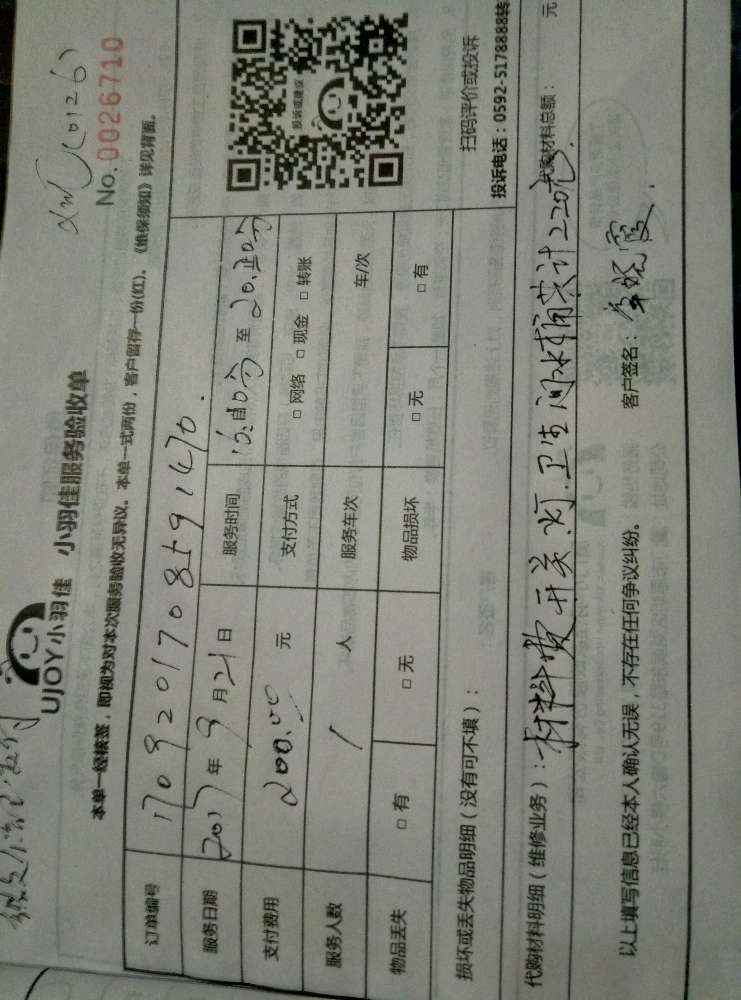 No.0026710
UJOY小羽佳 小羽佳服务验收单
本单一经核签，即视为对本次服务验收无异议。本单一式两份，客户留存一份(红)。《维保须知》详见背面。
订单编号 1709201708591470.
服务日期 2017年9月21日 服务时间 至20.20分
支付费用 200.00 元 支付方式 □ 网络 □ 现金 □ 转账
服务人数 1 人 服务车次 车/次
物品丢失 □ 有 □ 无 物品损坏 □ 无 □ 有
投诉或建议
扫码评价或投诉
投诉电话：0592-5178888转
损坏或丢失物品明细（没有可不填）：
代购材料明细（维修业务）：材料费开关.灯.卫生间水桶共计220元. 代购材料总额： 元
以上填写信息已经本人确认无误，不存在任何争议纠纷。 客户签名：